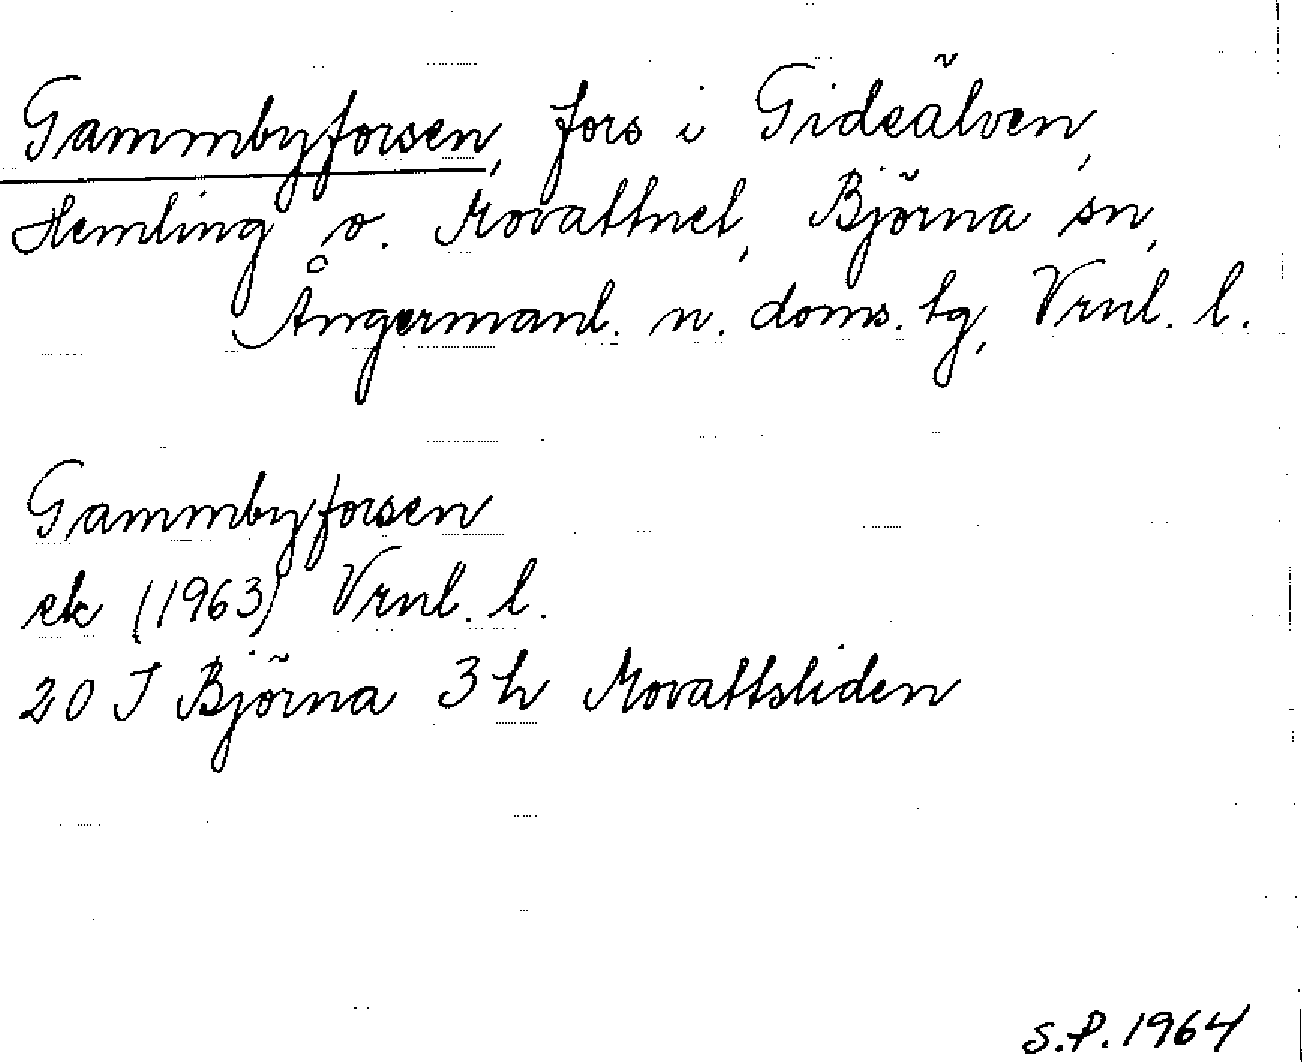 Gammbyforsen, fors i Gideälven,
Hemling o. Movattnet, Björna sn,
Ångermanl. n. doms. tg, Vrnl. l.
Gammbyforsen
ek (1963) Vrnl. l.
20 I Björna 3 h Movattsliden
S.P. 1964